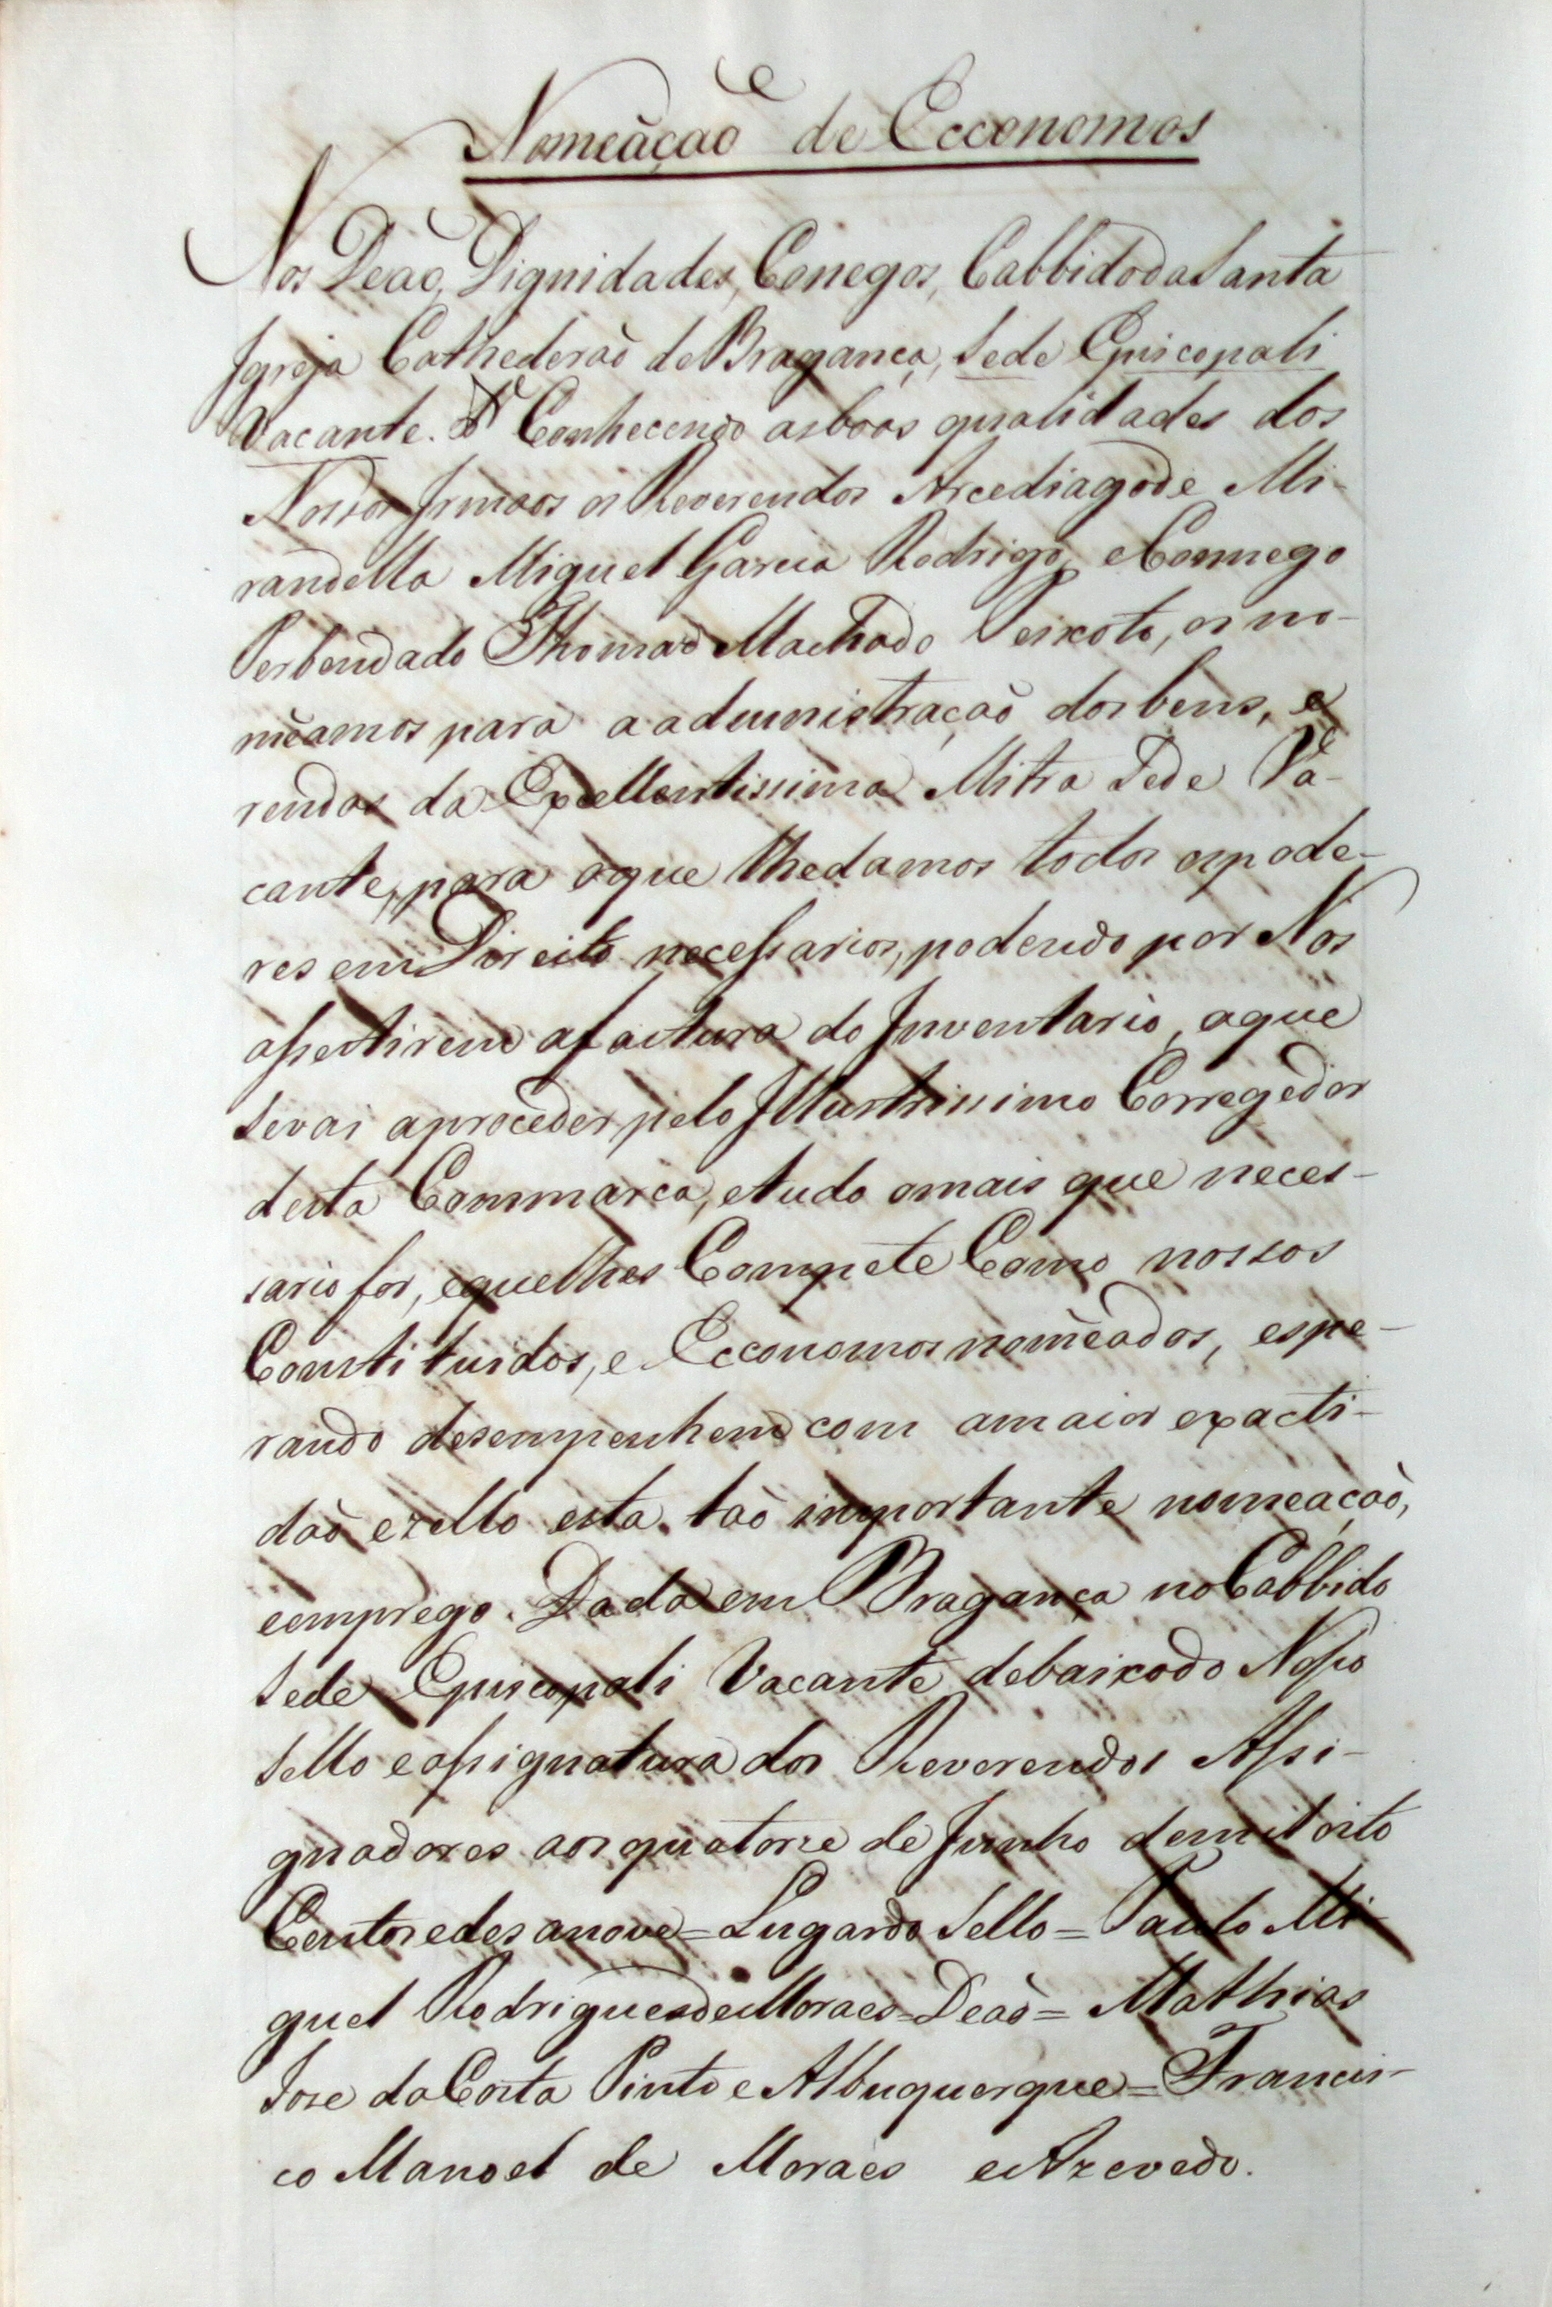 Nomeàçaõ de Ecconomos
Nos Deaõ, Dignidades, Conegos, Cabbido da Santa
Igreja Cathederaò de Bragança, Sede Episcopali
Vacante. Conhecendo as boas qualidades dos
Nossos Irmaos os Reverendos Arcediago de Mi-
randella Miguel Garcia Rodrigo, e Connego
Perbendado Thomas Machado Peixoto, os no-
mèamos para a administraçaò dos bens, e
rendas da Excellentissima Mitra Sede Va-
cante, para o que lhe damos todos os pode-
res em Direito necessarios, podendo por Nos
assestirem a factura do Inventario, a que
se vai a proceder pelo Illustrissimo Corregedor
desta Commarca, e tudo o mais que neces-
sario for, e que lhes Compete Como nossos
Constituidos, e Ecconomos nomèados, espe-
rando desempenhem com a maior exacti-
daò e zello esta taò importante nomeaçaò,
e emprego. Dada em Bragança no Cabbido
Sede Episcopali Vacante debaixo do Nosso
Sello e assignatura dos Reverendos Assi-
gnadores aos quatorze de Junho de mil oito
Centos e des anove = Lugar do Sello = Paulo Mi-
guel Rodrigues de Moraes = Deaò = Mathias
Jose da Costa Pinto e Albuquerque = Francis-
co Manoel de Moraes e Azevedo.